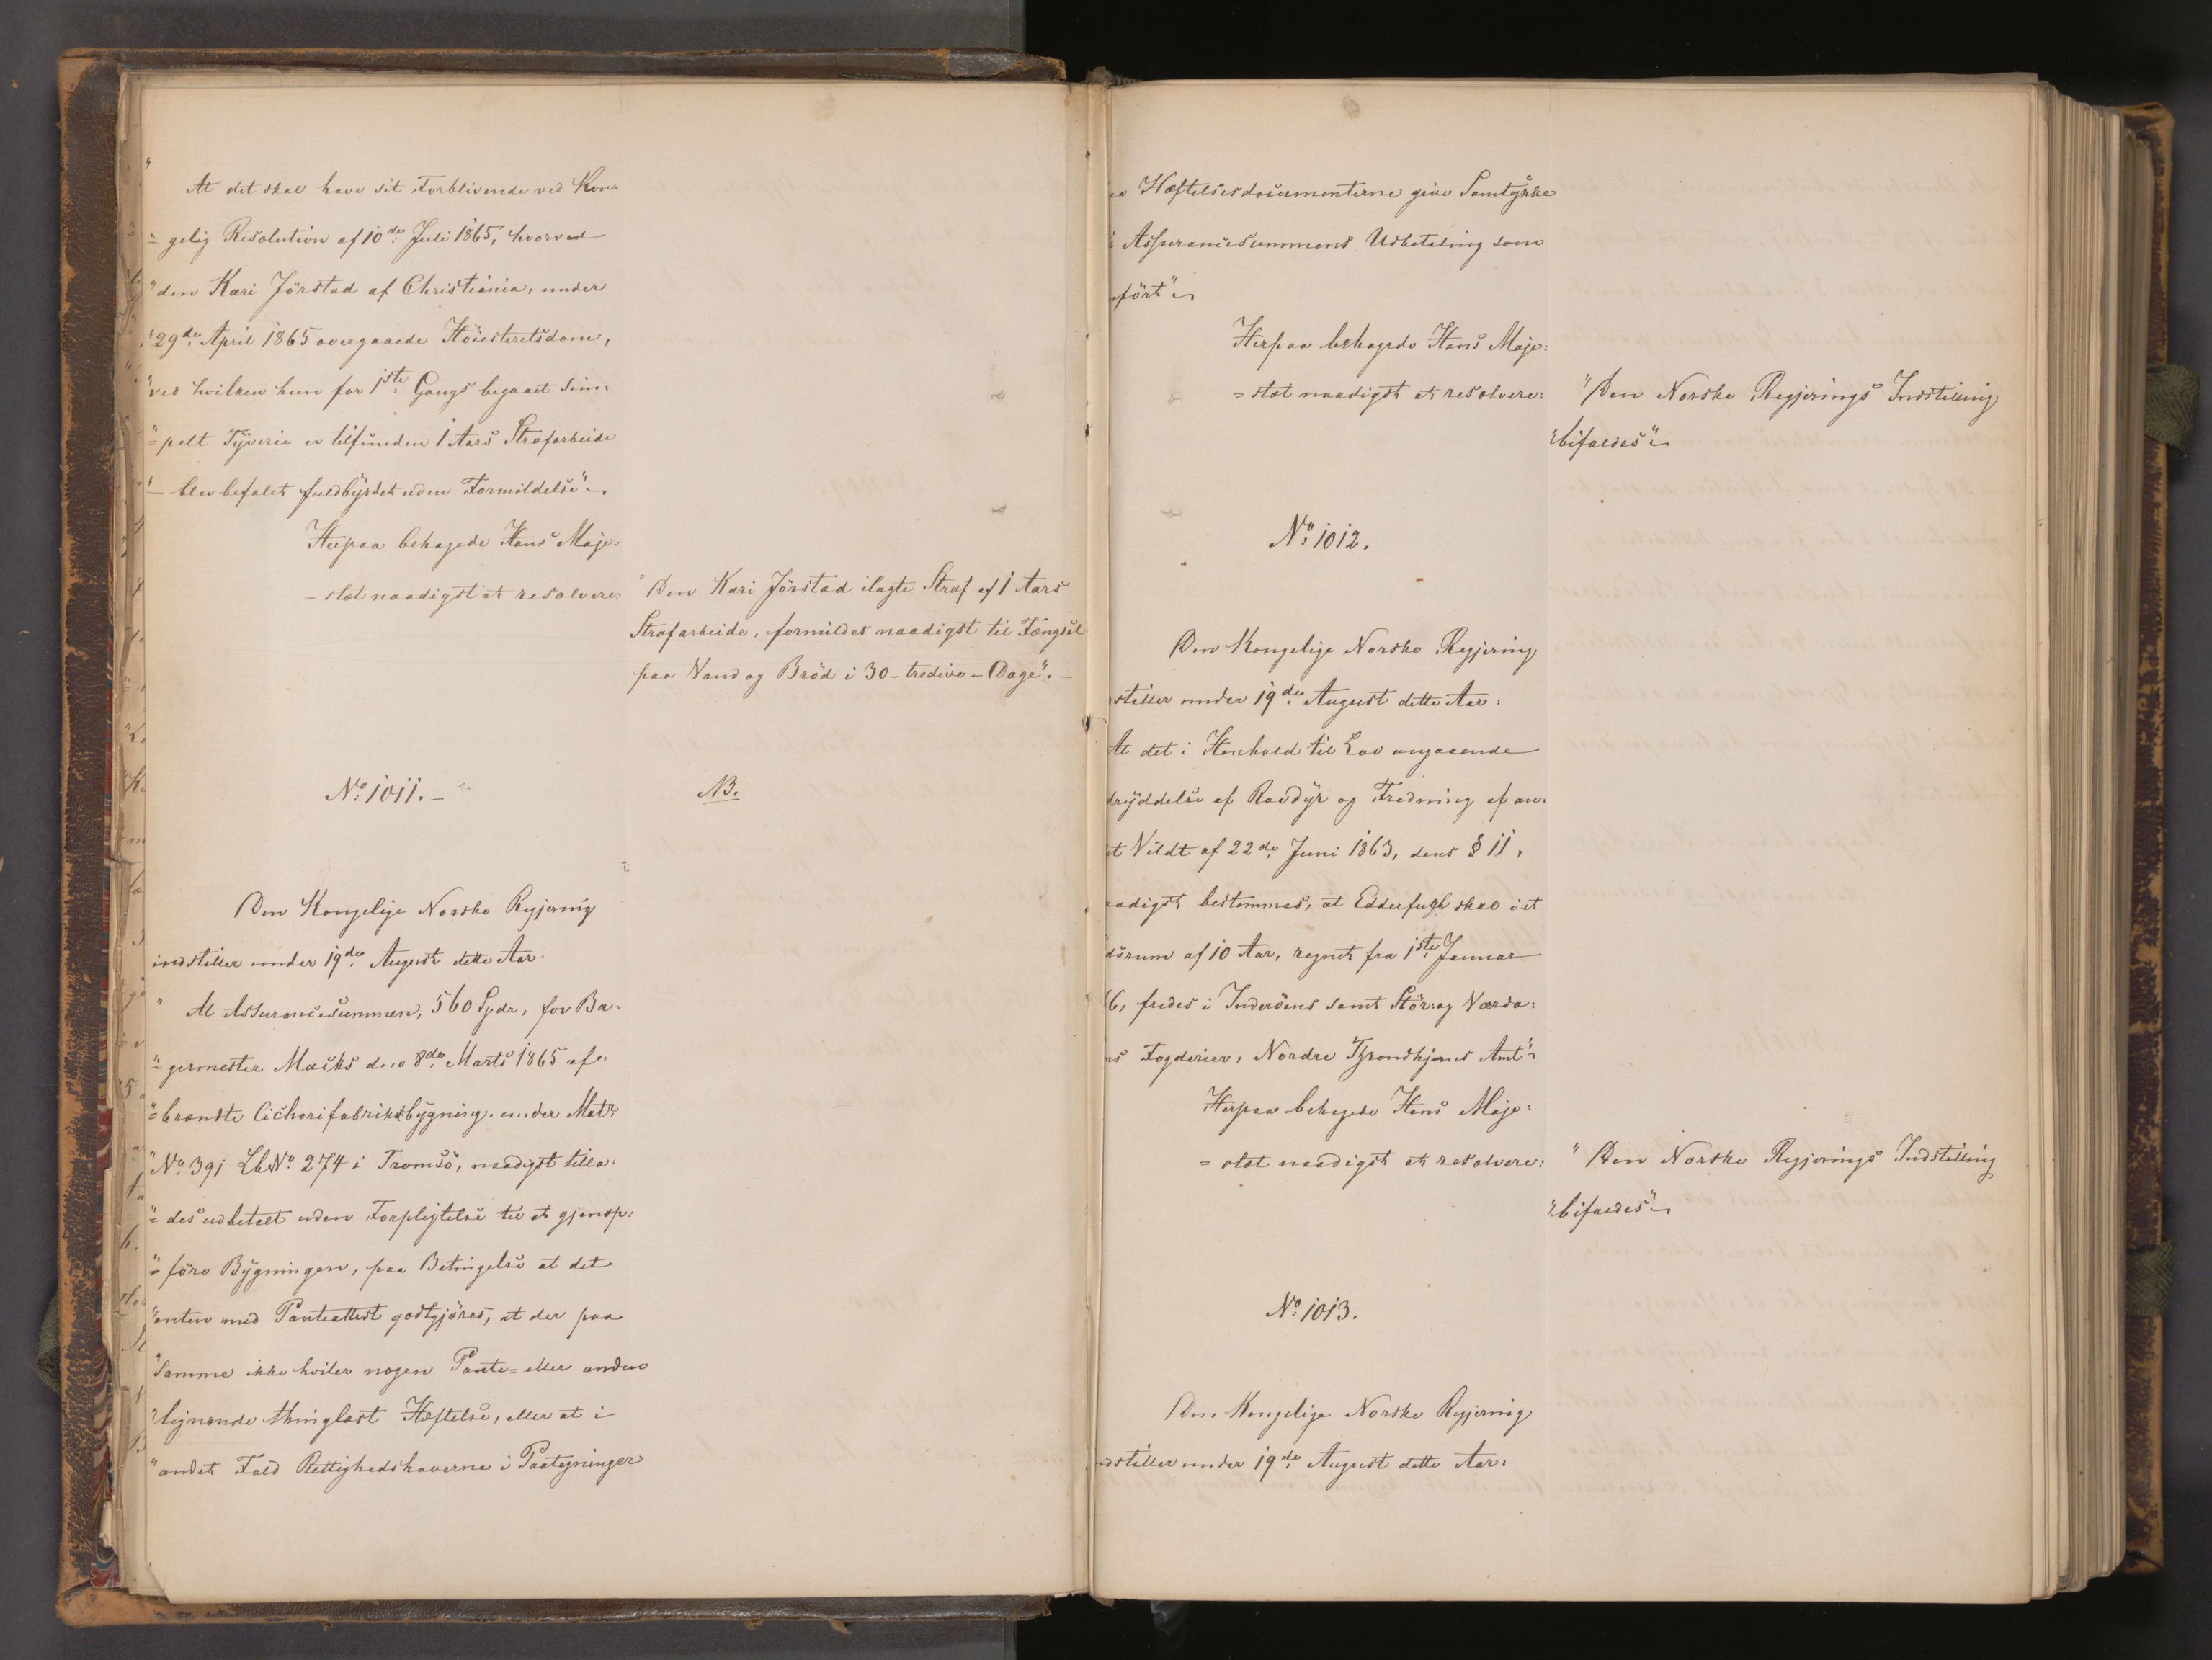 " At det skal have sit Forblivende ved Kon-
= gelig Resolution af 10de Juli 1865, hvorved
" den Kari Jörstad af Christiania, under
" 29de April 1865 overgaaede Höiesteretsdom,
" ved hvilken hun for 1ste Gangs begaaet Sim-
"= pelt Tyverie er tilfunden 1 Aars Strafarbeide
"- blev befalet fuldbyrdet uden Formildelse".
Herpaa behagede Hans Maje:
- stæt naadigst at resolvere:
" Den Kari Jörstad ilagte Straf af 1 Aars
Strafarbeide, formildes naadigst til Fængsel
paa Vand og Bröd i 30 - tredive - Dage". -
No 1011. -
NB.
Den Kongelige Norske Regjering
indstiller under 19de August dette Aar.
" At Assurancesummen, 560 Spdr, for Ba-
"= germester Macks den 8de Marts 1865 af-
"= brændte Cichorifabriksbygning under Matr
" No 391 Lb No 274 i Tromsö, naadigst tilla-
"= des udbetalt uden Forpligtelse til at gjenop-
"= före Bygningen, paa Betingelse at det
" enten med Panteattest godtgjöres, at der paa
" Samme ikke hviler nogen Pante= eller anden
" lignende thinglæst Hæftelse, eller at i
" andet Fald Rettighedshaverne i Paategninger
paa Hæftelsesdocumenterne give Samtykke
i Assurancesummens Udbetaling som
fört"
Herpaa behagede Hans Maje:
= stæt naadigst at resolvere:
" Den Norske Regjerings Indstilling
" bifaldes"
No 1012.
Den Kongelige Norske Regjering
stiller under 19de August dette Aar:
At det i Henhold til Lov angaaende
dryddelse af Rovdyr og Fredning af an-
et Vildt af 22de Juni 1863, dens § 11,
aadigst bestemmes, at Edderfugl skal i et
dsrum af 10 Aar, regnet fra 1ste Januar
66, fredes i Inderöens samt Stör- og Værda-
ns Fogderier, Nordre Throndhjems Amt"
Herpaa behagede Hans Maje:
= stæt naadigst at resolvere:
" Den Norske Regjerings Indstilling
" bifaldes"
No 1013.
Den Kongelige Norske Regjering
ndstiller under 19de August dette Aar: